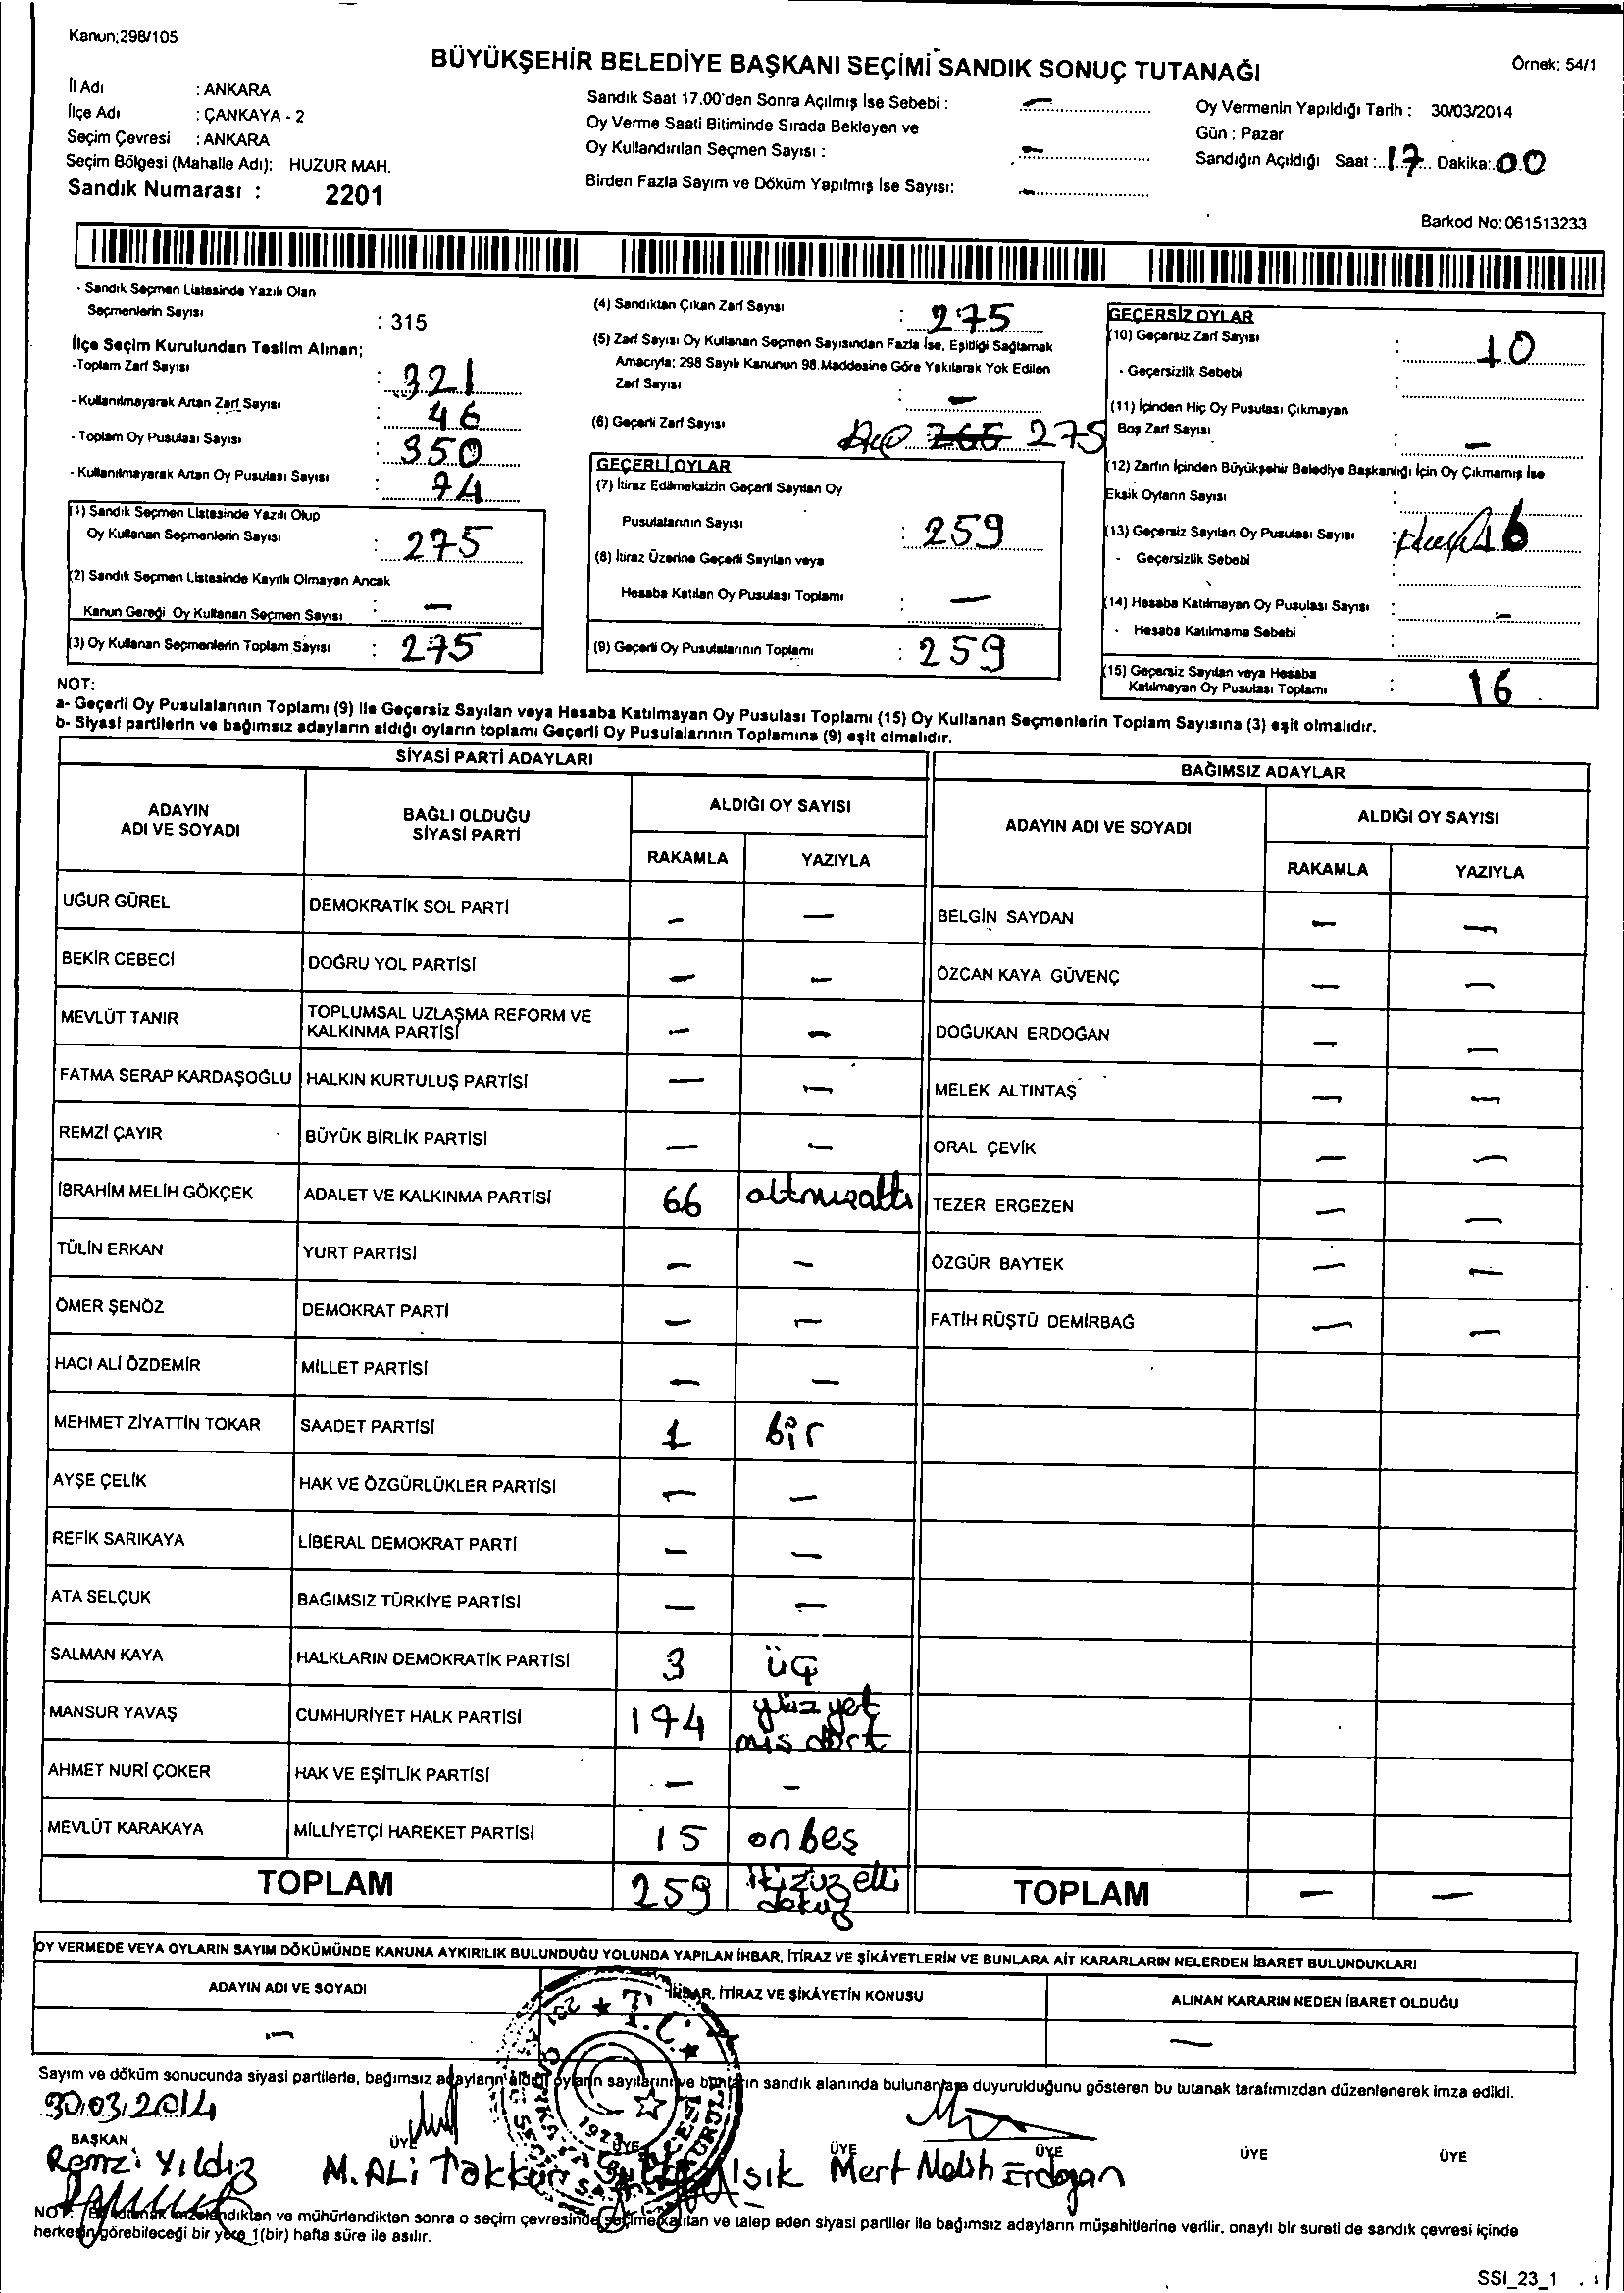 Kanun;298/105
BÜYÜKŞEHİR BELEDİYE BAŞKANI SEÇİMİ SANDIK SONUÇ TUTANAĞI
Örnek: 54/1
İl Adı : ANKARA
İlçe Adı : ÇANKAYA - 2
Seçim Çevresi : ANKARA
Seçim Bölgesi (Mahalle Adı): HUZUR MAH.
Sandık Numarası : 2201
Sandık Saat 17.00'den Sonra Açılmış İse Sebebi : —
Oy Verme Saati Bitiminde Sırada Bekleyen ve
Oy Kullandırılan Seçmen Sayısı : —
Birden Fazla Sayım ve Döküm Yapılmış İse Sayısı: —
Oy Vermenin Yapıldığı Tarih : 30/03/2014
Gün : Pazar
Sandığın Açıldığı Saat : 17 Dakika: 00
Barkod No: 061513233
- Sandık Seçmen Listesinde Yazılı Olan
Seçmenlerin Sayısı : 315
İlçe Seçim Kurulundan Teslim Alınan;
-Toplam Zarf Sayısı : 321
- Kullanılmayarak Artan Zarf Sayısı : 46
- Toplam Oy Pusulası Sayısı : 350
- Kullanılmayarak Artan Oy Pusulası Sayısı : 74
(1) Sandık Seçmen Listesinde Yazılı Olup
Oy Kullanan Seçmenlerin Sayısı : 275
(2) Sandık Seçmen Listesinde Kayıtlı Olmayan Ancak
Kanun Gereği Oy Kullanan Seçmen Sayısı : —
(3) Oy Kullanan Seçmenlerin Toplam Sayısı : 275
(4) Sandıktan Çıkan Zarf Sayısı : 275
(5) Zarf Sayısı Oy Kullanan Seçmen Sayısından Fazla İse, Eşitliği Sağlamak
Amacıyla; 298 Sayılı Kanunun 98.Maddesine Göre Yakılarak Yok Edilen
Zarf Sayısı : —
(6) Geçerli Zarf Sayısı 265 275
GEÇERLİ OYLAR
(7) İtiraz Edilmeksizin Geçerli Sayılan Oy
Pusulalarının Sayısı : 259
(8) İtiraz Üzerine Geçerli Sayılan veya
Hesaba Katılan Oy Pusulası Toplamı : —
(9) Geçerli Oy Pusulalarının Toplamı : 259
GEÇERSİZ OYLAR
(10) Geçersiz Zarf Sayısı : 10
- Geçersizlik Sebebi :
(11) İçinden Hiç Oy Pusulası Çıkmayan
Boş Zarf Sayısı : —
(12) Zarfın İçinden Büyükşehir Belediye Başkanlığı İçin Oy Çıkmamış İse
Eksik Oyların Sayısı :
(13) Geçersiz Sayılan Oy Pusulası Sayısı : 16
- Geçersizlik Sebebi
(14) Hesaba Katılmayan Oy Pusulası Sayısı : —
- Hesaba Katılmama Sebebi :
(15) Geçersiz Sayılan veya Hesaba
Katılmayan Oy Pusulası Toplamı : 16
NOT:
a- Geçerli Oy Pusulalarının Toplamı (9) ile Geçersiz Sayılan veya Hesaba Katılmayan Oy Pusulası Toplamı (15) Oy Kullanan Seçmenlerin Toplam Sayısına (3) eşit olmalıdır.
b- Siyasi partilerin ve bağımsız adayların aldığı oyların toplamı Geçerli Oy Pusulalarının Toplamına (9) eşit olmalıdır.
SİYASİ PARTİ ADAYLARI
ADAYIN ADI VE SOYADI BAĞLI OLDUĞU SİYASİ PARTİ ALDIĞI OY SAYISI
RAKAMLA YAZIYLA
UĞUR GÜREL DEMOKRATİK SOL PARTİ — —
BEKİR CEBECİ DOĞRU YOL PARTİSİ — —
MEVLÜT TANIR TOPLUMSAL UZLAŞMA REFORM VE KALKINMA PARTİSİ — —
FATMA SERAP KARDAŞOĞLU HALKIN KURTULUŞ PARTİSİ — —
REMZİ ÇAYIR BÜYÜK BİRLİK PARTİSİ — —
İBRAHİM MELİH GÖKÇEK ADALET VE KALKINMA PARTİSİ 66 altmışaltı
TÜLİN ERKAN YURT PARTİSİ — —
ÖMER ŞENÖZ DEMOKRAT PARTİ — —
HACI ALİ ÖZDEMİR MİLLET PARTİSİ — —
MEHMET ZİYATTİN TOKAR SAADET PARTİSİ 1 bir
AYŞE ÇELİK HAK VE ÖZGÜRLÜKLER PARTİSİ — —
REFİK SARIKAYA LİBERAL DEMOKRAT PARTİ — —
ATA SELÇUK BAĞIMSIZ TÜRKİYE PARTİSİ — —
SALMAN KAYA HALKLARIN DEMOKRATİK PARTİSİ 3 üç
MANSUR YAVAŞ CUMHURİYET HALK PARTİSİ 174 yüz yet miş dört
AHMET NURİ ÇOKER HAK VE EŞİTLİK PARTİSİ — —
MEVLÜT KARAKAYA MİLLİYETÇİ HAREKET PARTİSİ 15 onbeş
TOPLAM 259 ikiyüz elli dokuz
BAĞIMSIZ ADAYLAR
ADAYIN ADI VE SOYADI ALDIĞI OY SAYISI
RAKAMLA YAZIYLA
BELGİN SAYDAN — —
ÖZCAN KAYA GÜVENÇ — —
DOĞUKAN ERDOĞAN — —
MELEK ALTINTAŞ — —
ORAL ÇEVİK — —
TEZER ERGEZEN — —
ÖZGÜR BAYTEK — —
FATİH RÜŞTÜ DEMİRBAĞ — —
TOPLAM — —
OY VERMEDE VEYA OYLARIN SAYIM DÖKÜMÜNDE KANUNA AYKIRILIK BULUNDUĞU YOLUNDA YAPILAN İHBAR, İTİRAZ VE ŞİKÂYETLERİN VE BUNLARA AİT KARARLARIN NELERDEN İBARET BULUNDUKLARI
ADAYIN ADI VE SOYADI İHBAR, İTİRAZ VE ŞİKÂYETİN KONUSU ALINAN KARARIN NEDEN İBARET OLDUĞU
— —
T.C.
1923
Sayım ve döküm sonucunda siyasi partilerle, bağımsız adayların aldığı oyların sayılarını ve bunların sandık alanında bulunanlara duyurulduğunu gösteren bu tutanak tarafımızdan düzenlenerek imza edildi.
30.03.2014
BAŞKAN ÜYE ÜYE ÜYE ÜYE ÜYE ÜYE
Remzi Yıldız M. ALi Takkur Işık Mert Melih Erdoğan
NOT: Bu tutanak imzalandıktan ve mühürlendikten sonra o seçim çevresinde seçime katılan ve talep eden siyasi partiler ile bağımsız adayların müşahitlerine verilir, onaylı bir sureti de sandık çevresi içinde
herkesin görebileceği bir yere 1(bir) hafta süre ile asılır.
SSI_23_1